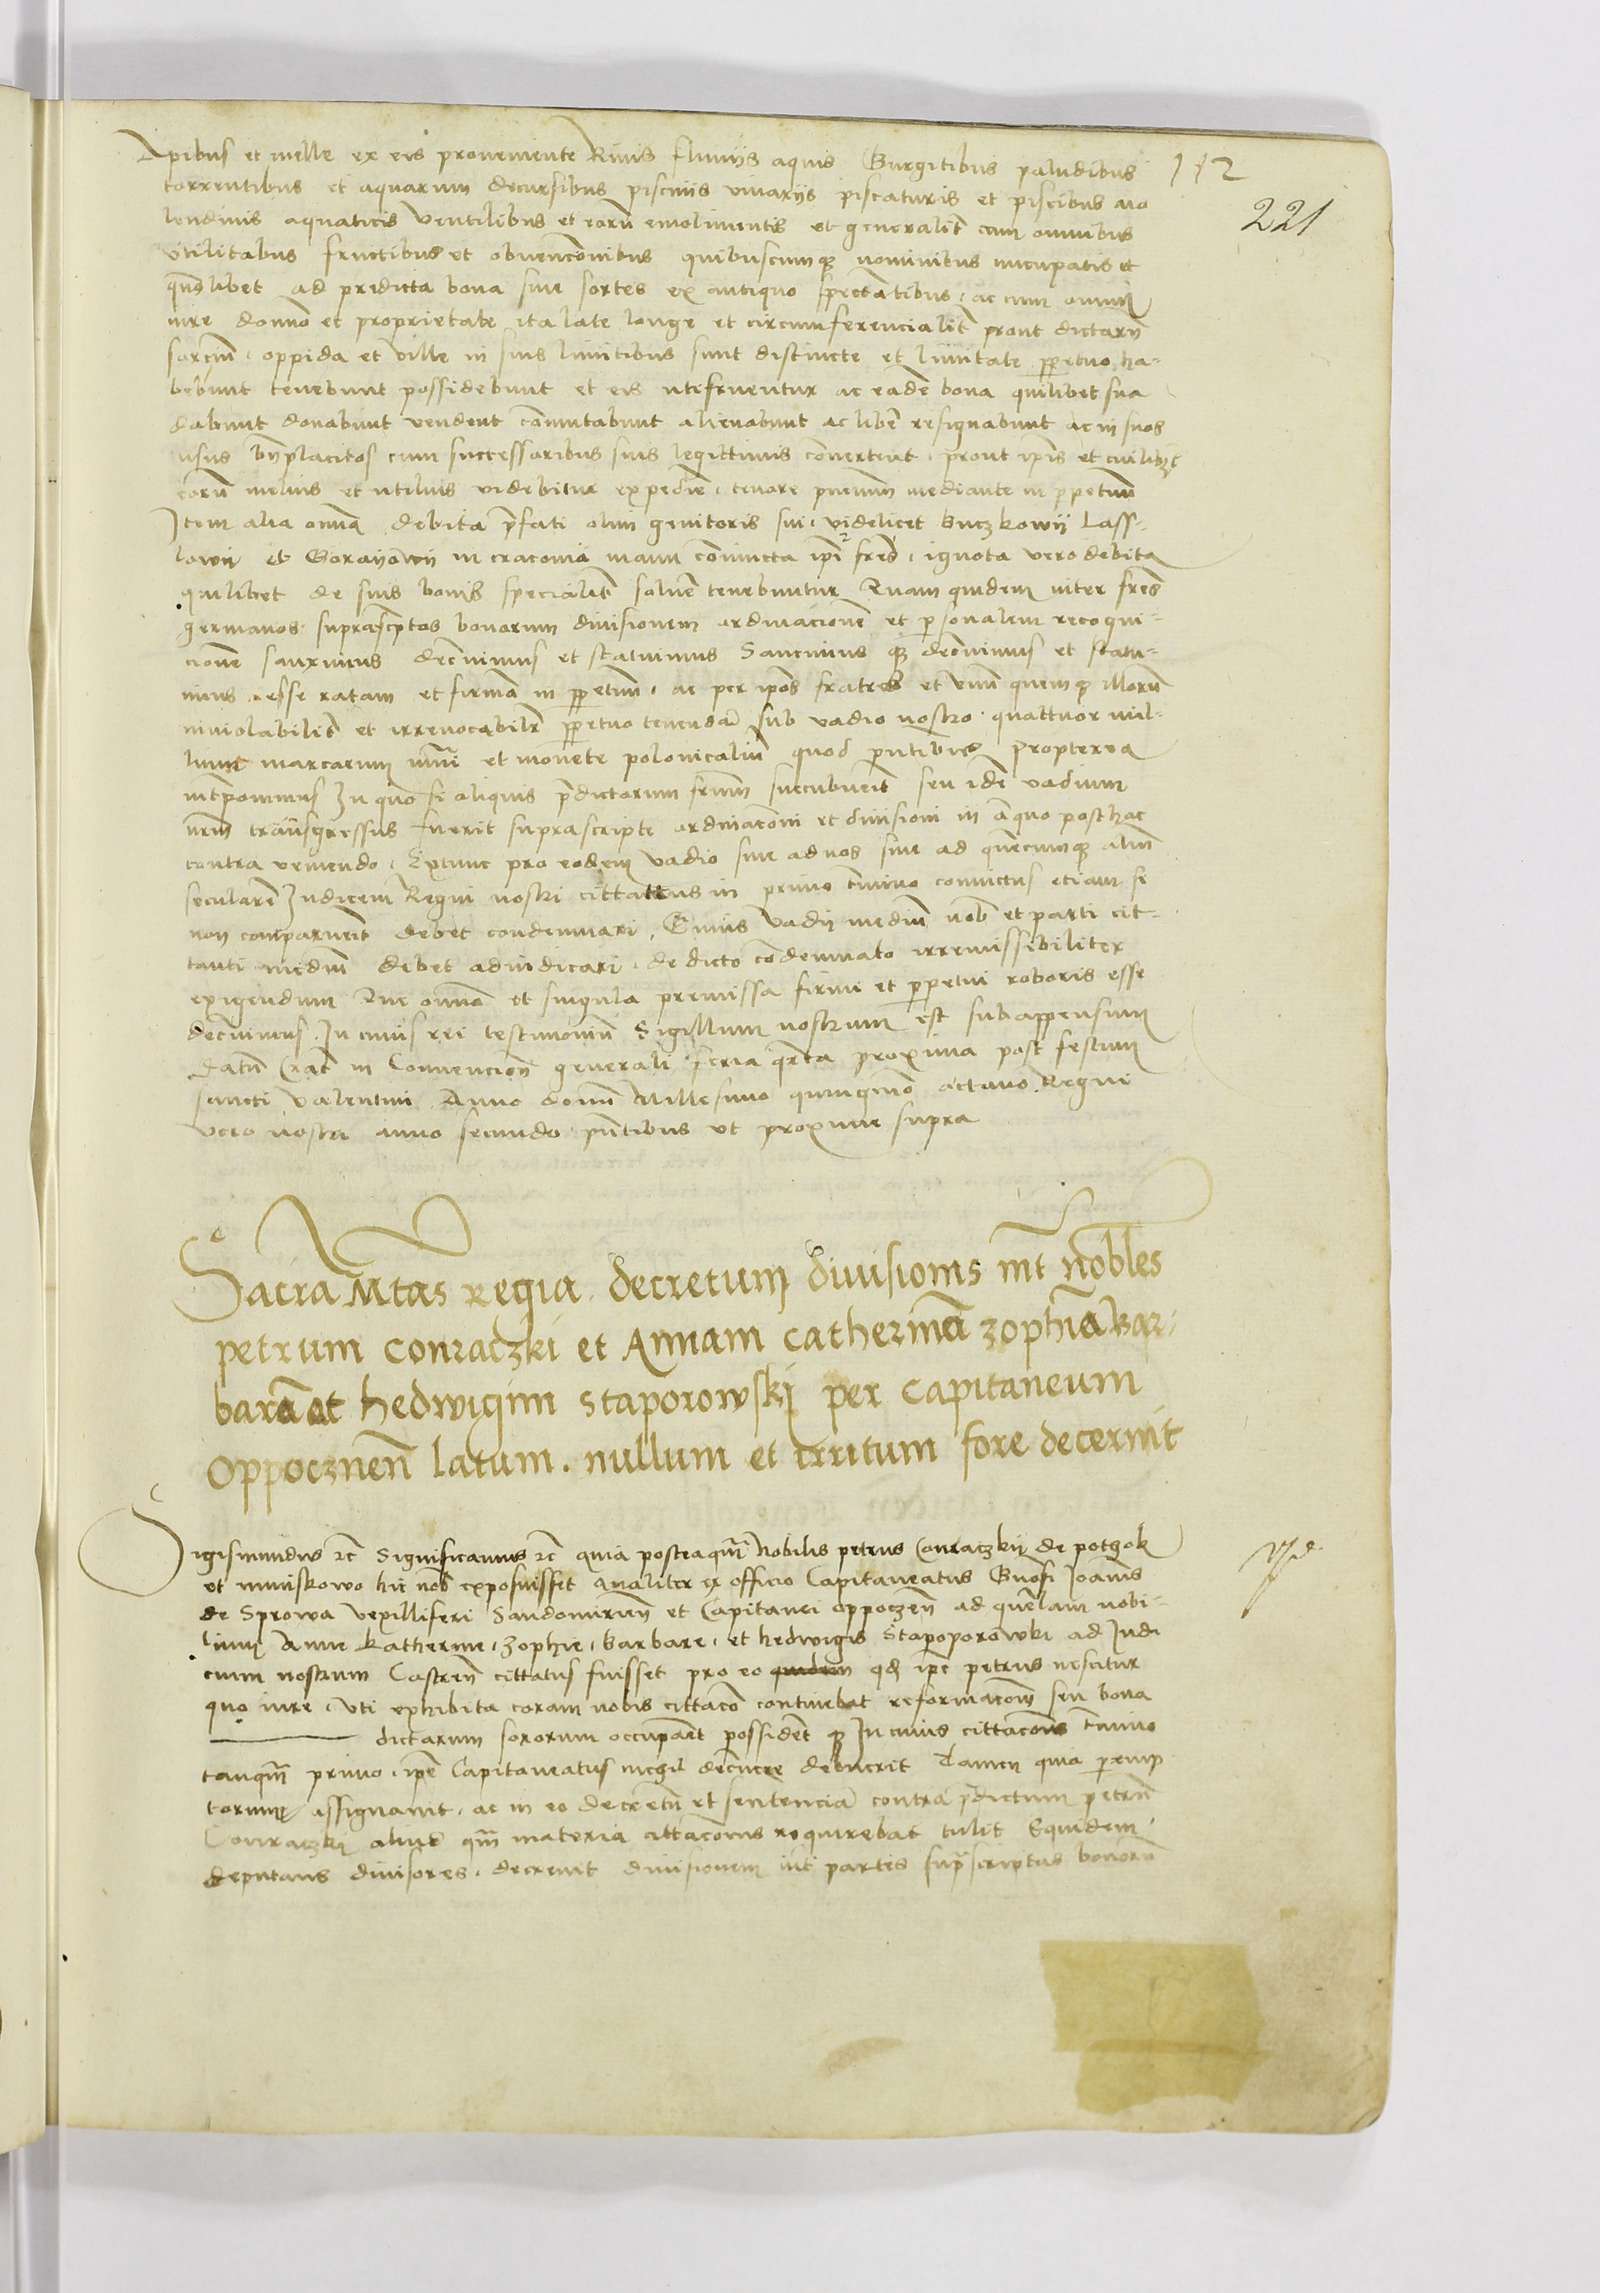 Apibus et melle ex eis proveniente Rivis fluviis aquis Gurgitibus paludibus
112
torrentibus et aquarum decursibus piscinis vivariis piscaturis et piscibus mo
221
lendinis aquaticis ventilibus et earū emolimentis et generalit cum omnibus
utilitabus fructibus et obvencōnibus quibuscumq nominibus nucupatis et
qmōlibet ad predicta bona sive sortes ex antiquo spectātibus, ac cum omni
iure domīo et proprietate ita late longe et circumferencialit prout dictarū
sorcium, oppida et ville in suis limitibus sunt distincte et limitate ppetuo ha-
bebunt tenebunt possidebunt et eis utefruentur ac eadē bona quilibet sua
dabunt donabunt vendent cōmutabunt alienabunt ac liber resignabunt ac in suos
usus bnplacitos cum successoribus suis legittimis convertent, prout ipis et cuilibet
eorū melius et utilius videbitur expedire, tenore pntium mediante in ppetuum
Item alia omīa debita pfati olim genitoris sui, videlicet Buczkowij Lass-
lowij et Gorayowij in cracovia manu cōiuncta ipi frēs, ignota vero debita
quilibet de suis bonis specialit solvē tenebuntur Quam quidem inter frēs
germanos suprascptos bonorum divisionem ordinacionē et psonalem recogni-
cionē sanximus decrevimus et statuimus Sancimus q decrevimus et statu-
imus, esse ratam et firmā in ppetuū, ac per ipōs fratres et unū quemq illorū
inviolabilit et irrevocabilr ppetuo tenendā sub vadio nostro quattuor mil-
lium marcarum nūi et monete polonicaliū quod pntibus propterea
intponimus In quo si aliquis pdictorum frum succubuerit seu idē vadium
nrm trānsgressus fuerit suprascripte ordinacōni et divisioni in aliquo posthac
contra veniendo, Extunc pro eodem vadio sive ad nos sive ad quecumq aliū
secularē Iudicem Regni nostri cittatus in primo tmino convictus etiam si
non comparuerit debet condemnari, Cuius vadij mediū nob et parti cit-
tanti mediū debet adiudicari, de dicto cōdemnato irremissibiliter
exigendum Que omīa et singula premissa firmi et ppetui roboris esse
decrevimus. In cuius rei testimoniū Sigillum nostrum est subappensum
datū Crac in Convencione generali feria qrta proxima post festum
sancti valentini Anno domī Millesimo quingmō octavo Regni
vero nostri anno secundo pntibus ut proxime supra
Sacra Mtas Regia decretum divisionis int nobles
petrum Conraczki et Annam Catherinā zophiā Bar-
barā ac hedwigim Staporowski per Capitaneum
Oppocznen latum. nullum et irritum fore decernit
Sigismundus rc Significamus rc quia posteaqm Nobilis petrus Conraczkij de pothok
et muniskowo hic nob exposuisset qualiter ex officio Capitaneatus Gnosi Ioānis
de Sprowa vexilliferi Sandomirien et Capitanei oppoczen ad querelam nobi-
lium Anne Katherine, zophie, barbare, et hedwigis Staporowki ad Iudi
cium nostrum Castren cittatus fuisset pro eo qd ipe petrus nescitur
quo iure, uti exhibita coram nobis cittacō continebat reformacom seu bona
dictarum sororum occuparet possidet q In cuius cittacōnis tmino
tanqm primo, ipe Capitaneatus nichil decernere debuerit Tamen quia peremp
torium assignavit, ac in eo decretū et sentenciā contra pdictum petrū
Conraczki aliud qm materia cittacōnis requirebat tulit Equidem
deputans divisores, decrevit divisionem int partes supscriptas bonorū